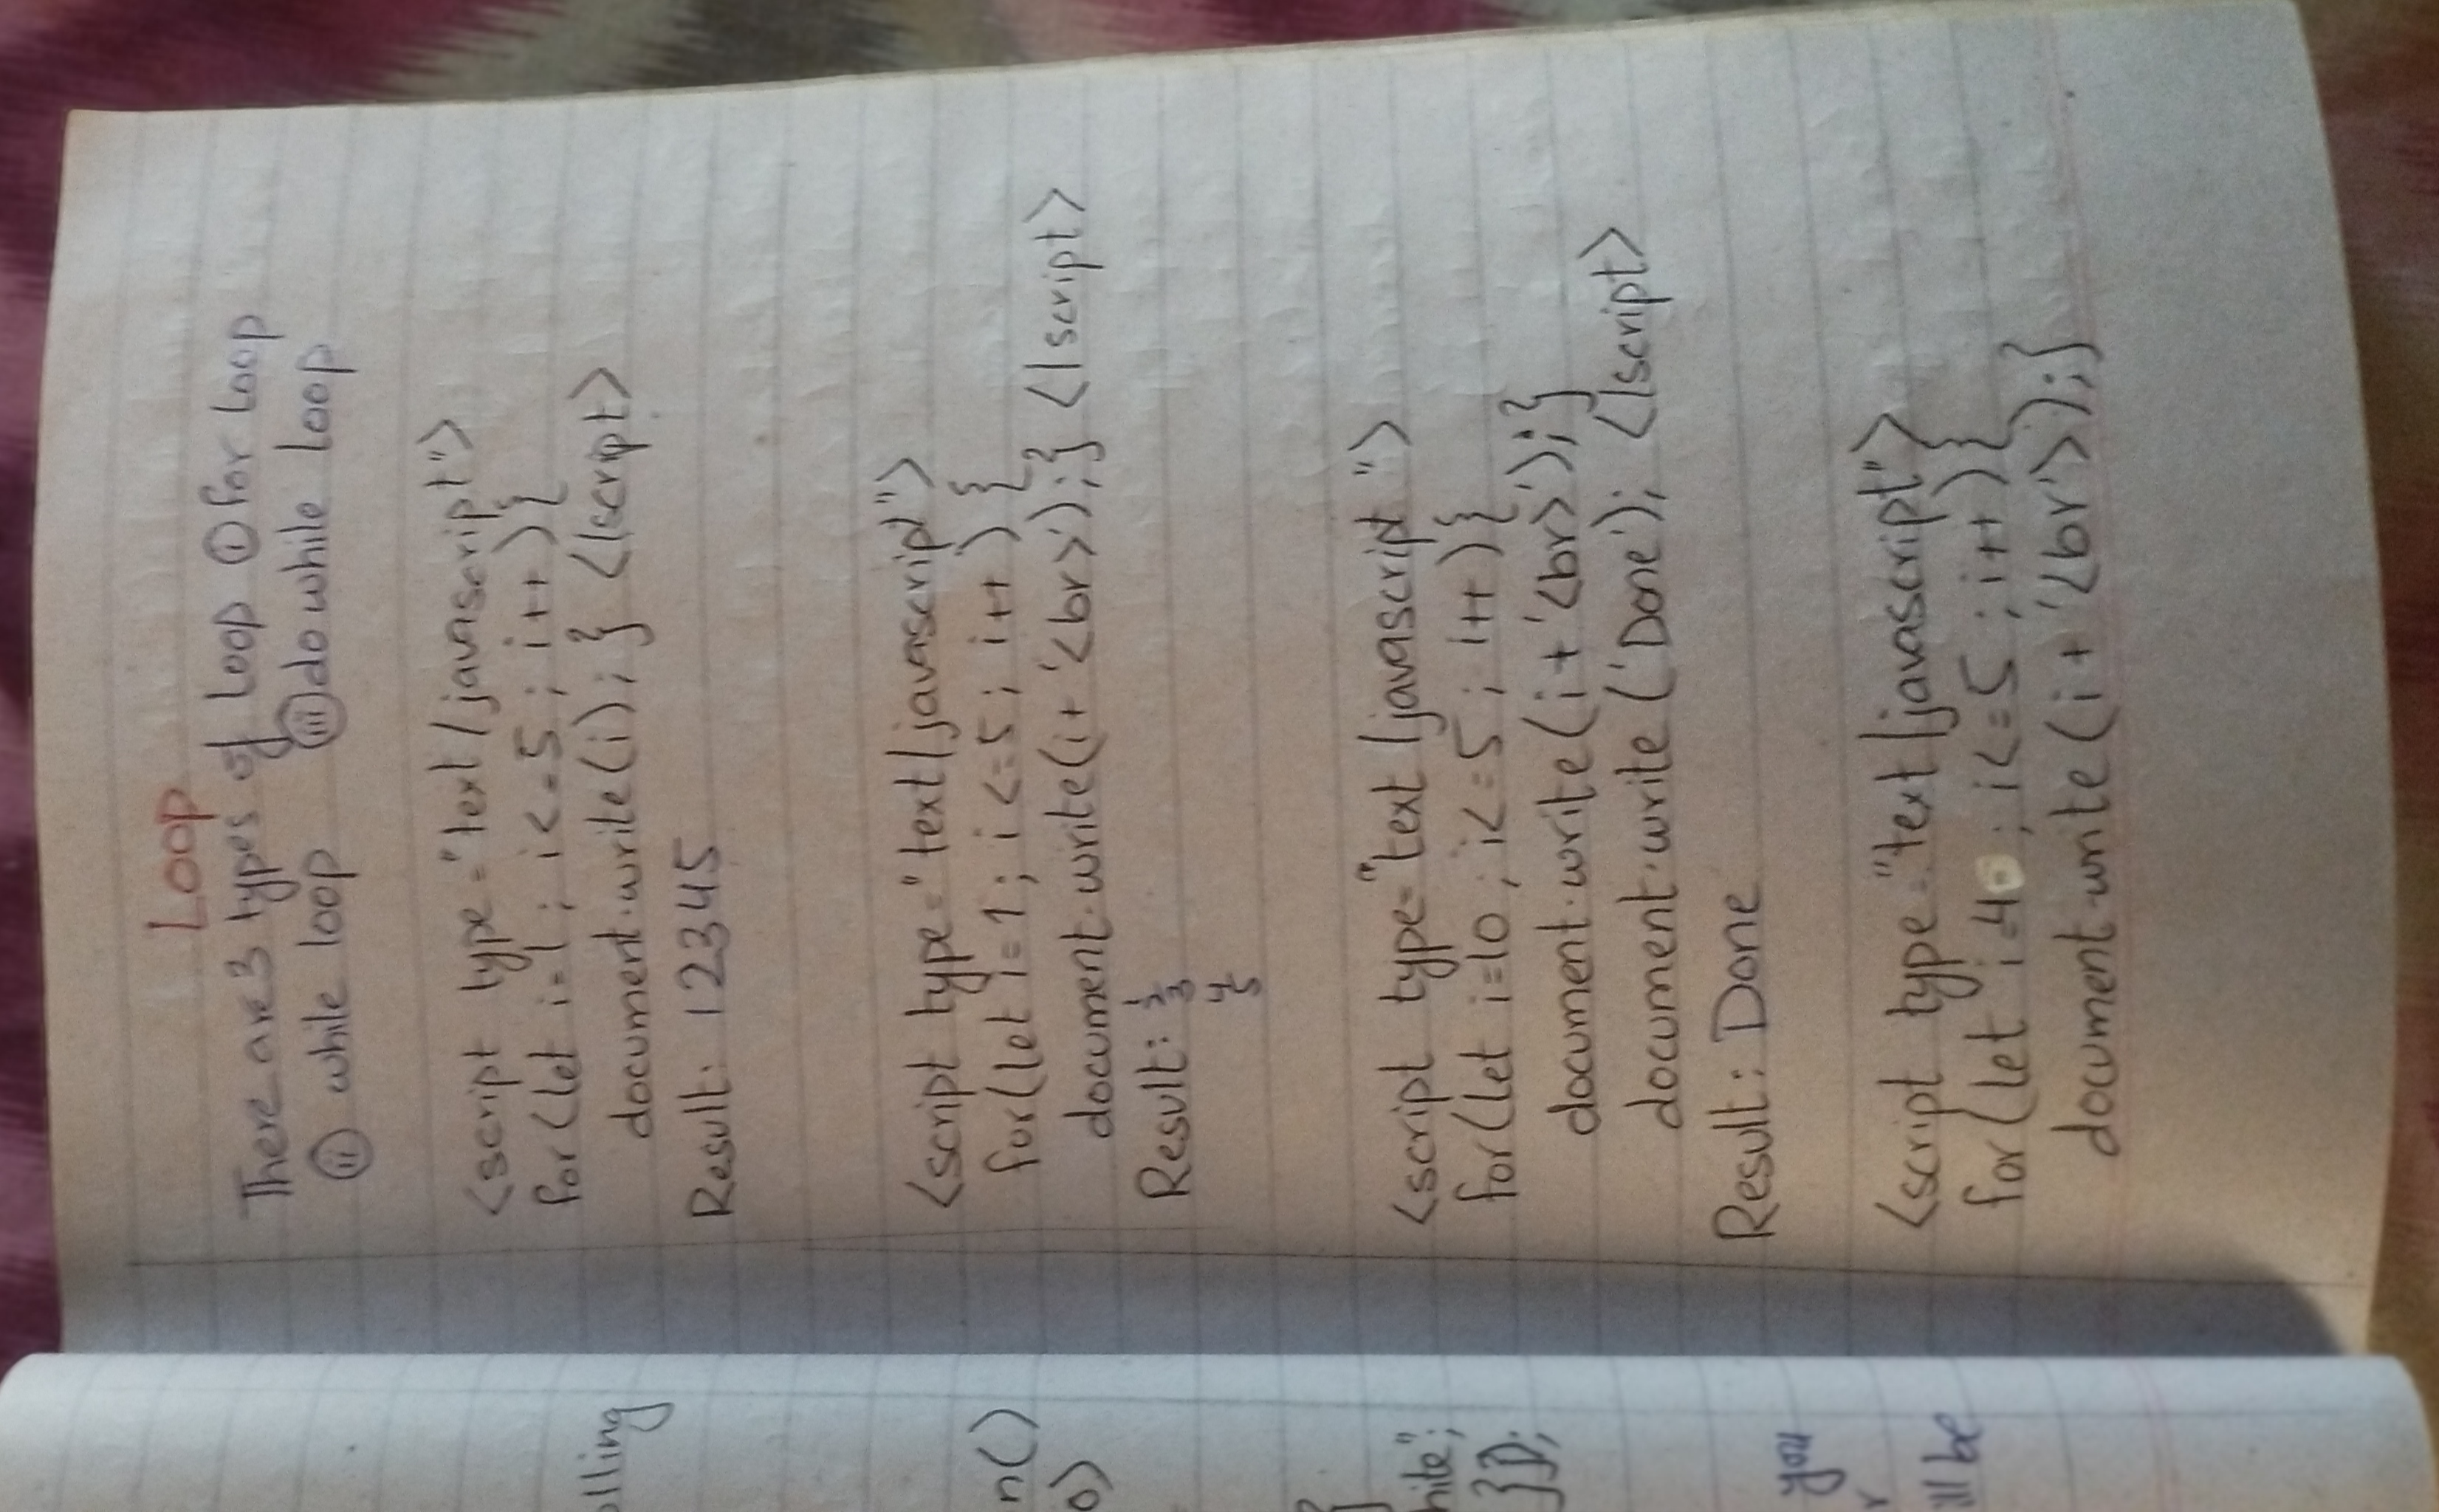 Loop
There are 3 types of Loop (i) for Loop
(ii) while loop (iii) do while Loop
<script type="text/javascript">
for(let i=1; i<=5; i++){
document.write(i);} </script>
Result: 12345
<script type="text/javascript">
for(let i=1; i<=5; i++){
document.write(i+'<br>');} </script>
Result: 1
2
3
4
5
<script type="text/javascript">
for(let i=10; i<=5; i++){
document.write(i+'<br>');}
document.write('Done'); </script>
Result: Done
<script type="text/javascript">
for(let i=4; i<=5; i++){
document.write(i+'<br>');}
olling
n()
hite";
}});
you
ill be